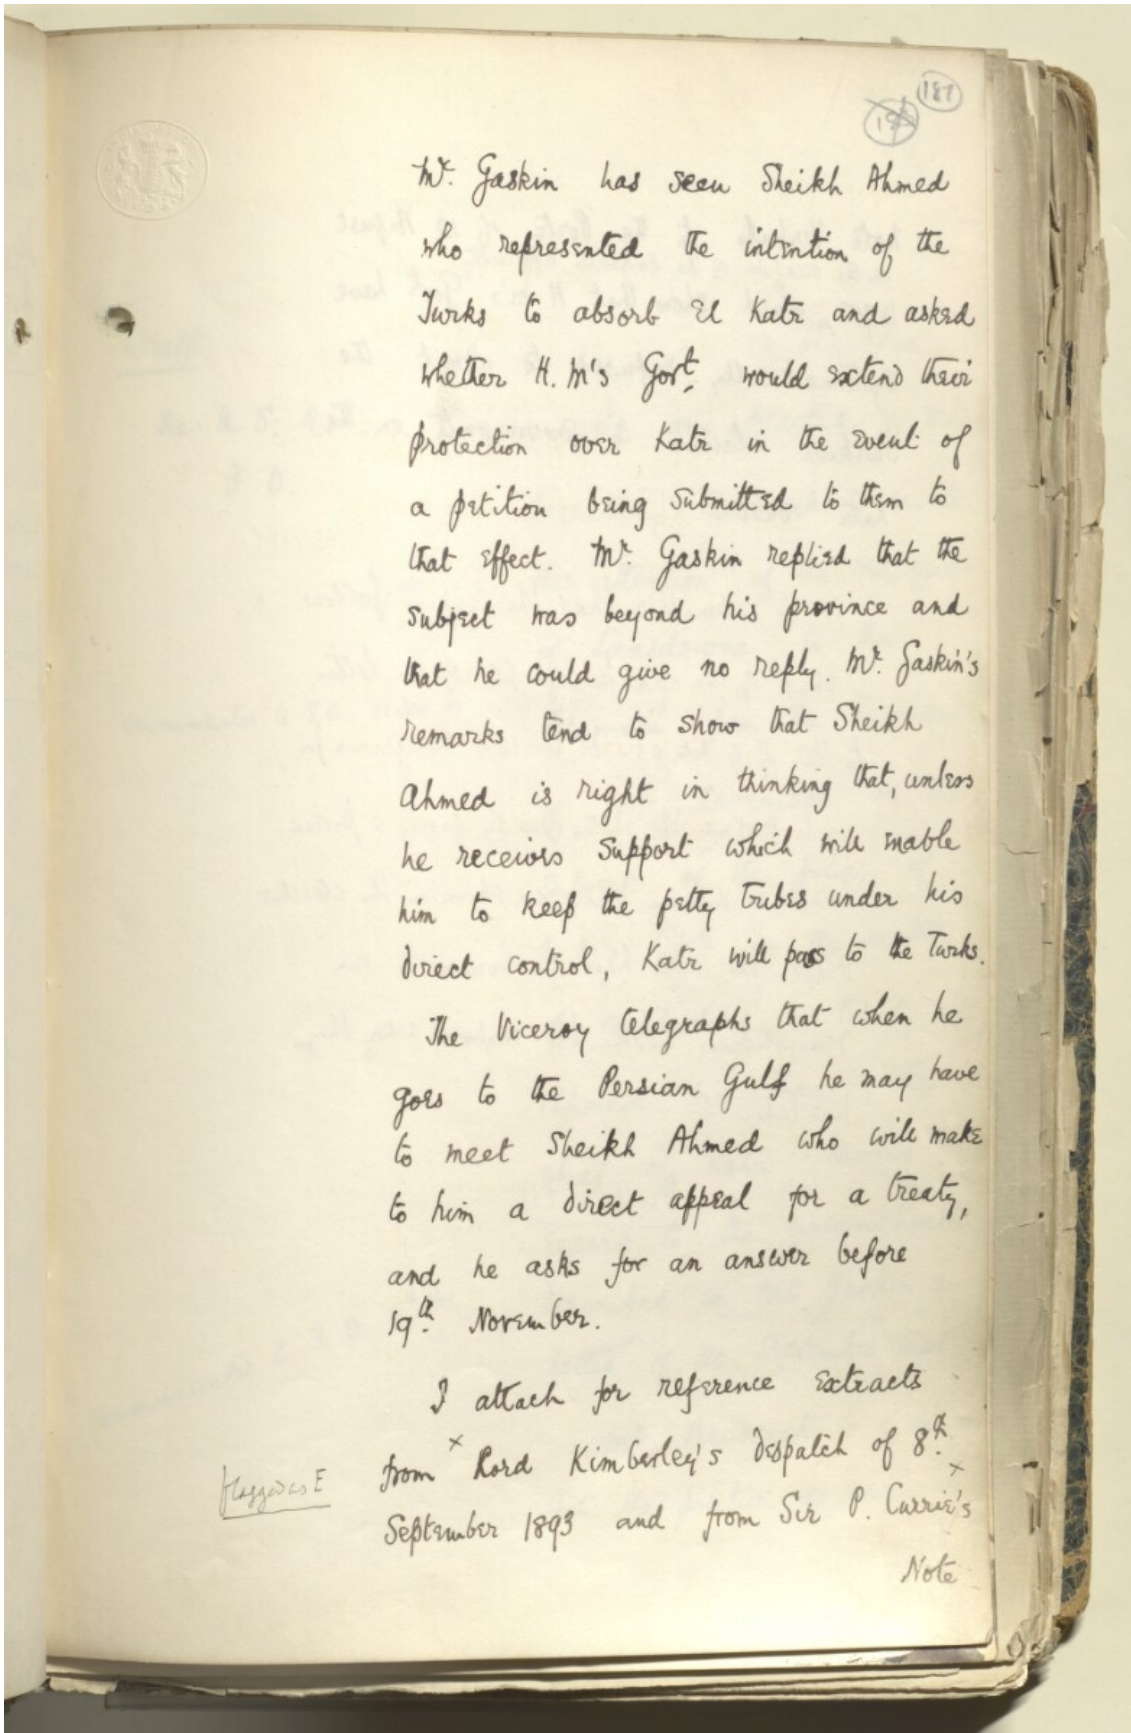 187
Mr. Gaskin has seen Sheikh Ahmed
who represented the intention of the
Turks to absorb El Katr and asked
whether H.M's Govt. would extend their
protection over Katr in the event of
a petition being submitted to them to
that effect. Mr. Gaskin replied that the
subject was beyond his province and
that he could give no reply. Mr. Gaskin's
remarks tend to show that Sheikh
Ahmed is right in thinking that, unless
he receives support which will enable
him to keep the petty tribes under his
direct control, Katr will pass to the Turks.
The Viceroy telegraphs that when he
goes to the Persian Gulf he may have
to meet Sheikh Ahmed who will make
to him a direct appeal for a treaty,
and he asks for an answer before
19th. November.
I attach for reference extracts
from x Lord Kimberley's despatch of 8th.
flagged as E
September 1893 and from Sir P. Currie's x
Note